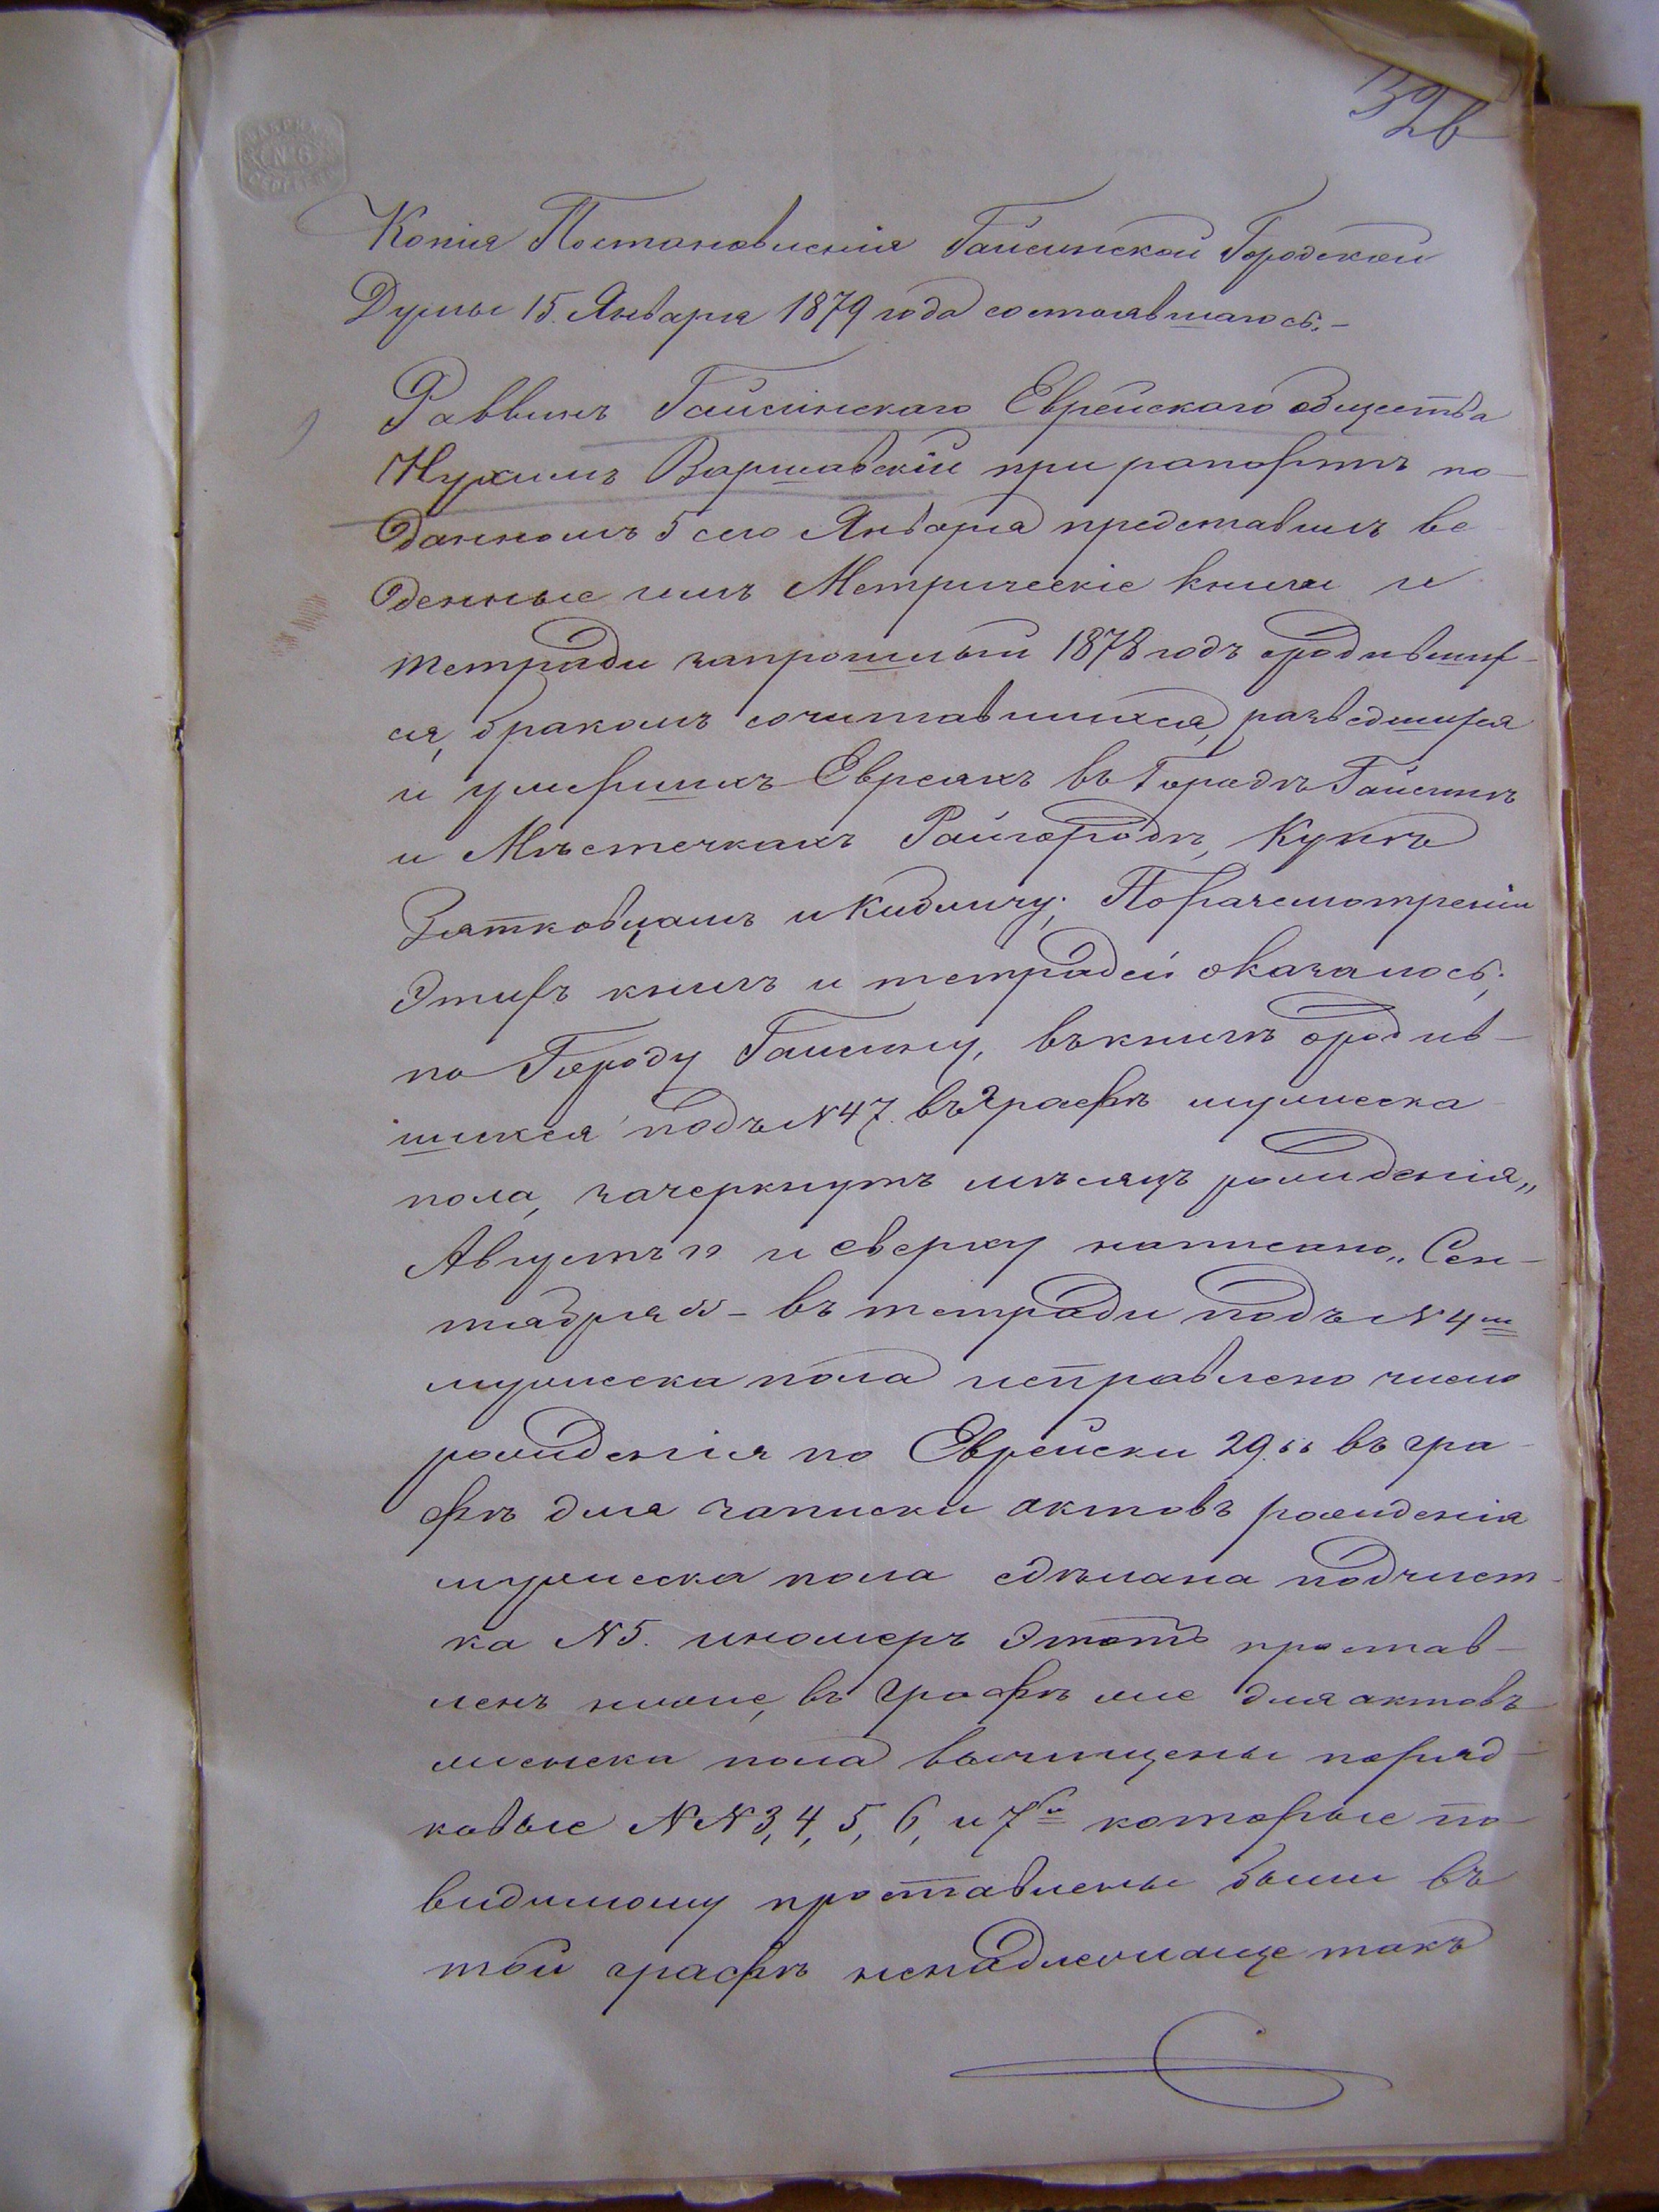 326
ФАБРИКИ
№ 6
СЕРГѢЕВА
Копія Постановленія Гайсинской Городской
Думы 15 Января 1879 года состоявшагося.–
Раввинъ Гайсинскаго Еврейскаго общества
Нухимъ Варшавскій при рапортѣ по-
данномъ 5 сего Января представилъ ве-
денные имъ Метрическіе книги и
тетради запрошлый 1878 годъ ородивших-
ся, бракомъ сочитавшихся, разведшихся
и умершихъ Евреяхъ въ Городѣ Гайсинѣ
и Мѣстечкахъ Райгородѣ, Кунѣ
Зятковцамъ и Кибличу; Поразсмотреніи
этихъ книгъ и тетрадей оказалось;
по Городу Гайсину, въ книгѣ ородив-
шихся подъ №47. въ графѣ мужеска
пола, зачеркнутъ мѣсяцъ рожденія „
Августъ" и сверху написано „Сен-
тября" – въ тетради подъ №4м
мужеска пола исправлено число
рожденія по Еврейски 29." въ гра-
фѣ для записки актовъ рожденія
мужеска пола сдѣлана подчист-
ка №5. иномеръ этотъ простав-
ленъ ниже, въ графѣ же для актовъ
женска пола вычищены поряд-
ковые №№3, 4, 5, 6, и 7й которые по-
видимому проставлены были въ
той графѣ ненадлежаще такъ